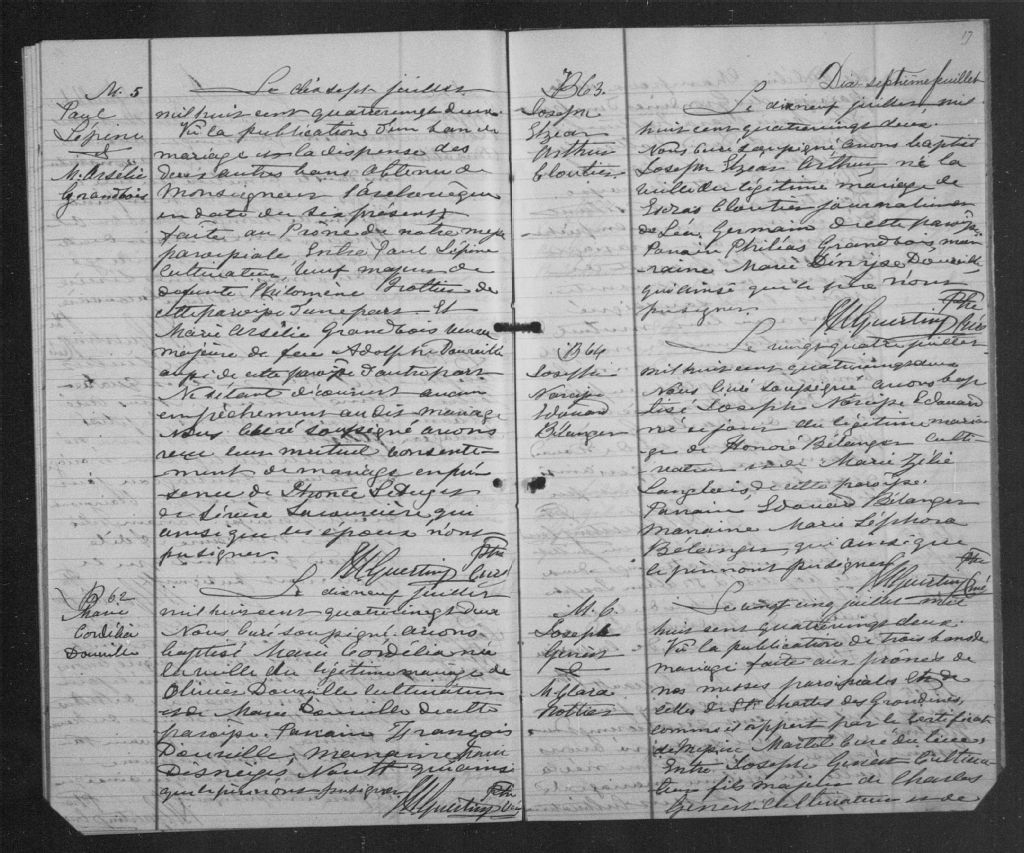 M. 5
Paul
Lépine
&
M. Arsélie
Grandbois
Le dix sept juillet
mil huit cent quatrevingt deux
Vu la publication d'un ban de
mariage et la dispense des
deux autres bans obtenue de
Monseigneur l'archevêque
en date du six présent
faite au Prône de notre messe
paroissiale Entre Paul Lépine
cultivateur, veuf majeur de
défunte Philomène Trottier de
cette paroisse d'une part Et
Marie Arsélie Grandbois veuve
majeure de feu Adolphe Douville
aussi de cette paroisse d'autre part
Ne s'étant découvert aucun
empêchement au dit mariage
Nous Curé soussigné avons
reçu leur mutuel consente-
ment de mariage en pré-
sence de
de Sévère Lacoursière qui
ainsi que les époux n'ont
pu signer.
FX Guertin Ptre
Curé
B 62
Marie
Cordélia
Douville
Le dixneuf juillet
mil huit cent quatrevingt deux
Nous Curé soussigné avons
baptisé Marie Cordélia née
la veille du légitime mariage de
Olivier Douville cultivateur
et de Marie Douville de cette
paroisse. Parrain François
Douville, marraine Marie
Desneiges Nault qui ainsi
que le père n'ont pu signer.
Guertin Ptre
Curé
17
Dix septième juillet
B 63.
Joseph
Elzéar
Arthur
Cloutier
Le dixneuf juillet mil
huit cent quatrevingt deux.
Nous Curé soussigné avons baptisé
Joseph Elzéar Arthur né la
veille du légitime mariage de
Esdras Cloutier journalier et
de Léa Germain de cette paroisse
Parrain Philias Grandbois, mar-
raine Marie Denyse Douville
qui ainsi que le père n'ont
pu signer.
Guertin Ptre
Curé
B 64
Joseph
Narcisse
Edouard
Bélanger
Le vingt quatre juillet
mil huit cent quatrevingt deux
Nous Curé soussigné avons bap-
tisé Joseph Narcisse Edouard
né ce jour du légitime maria-
ge de Honoré Bélanger culti-
vateur et de Marie Zélie
Langlois de cette paroisse.
Parrain Edouard Bélanger
Marraine Marie Séphora
Bélanger qui ainsi que
le père n'ont pu signer
Guertin Ptre
Curé
M. 6.
Joseph
Genest
&
M. Clara
Trottier
Le vingt cinq juillet mil
huit cent quatrevingt deux.
Vu la publication de trois bans de
mariage faite aux prônes de
nos messes paroissiales Et de
celles de St. Charles des Grondines,
comme il appert par le certificat
de Messire Martel Curé du lieu.
Entre Joseph Genest Cultiva-
teur fils majeur de Charles
Genest Cultivateur et de